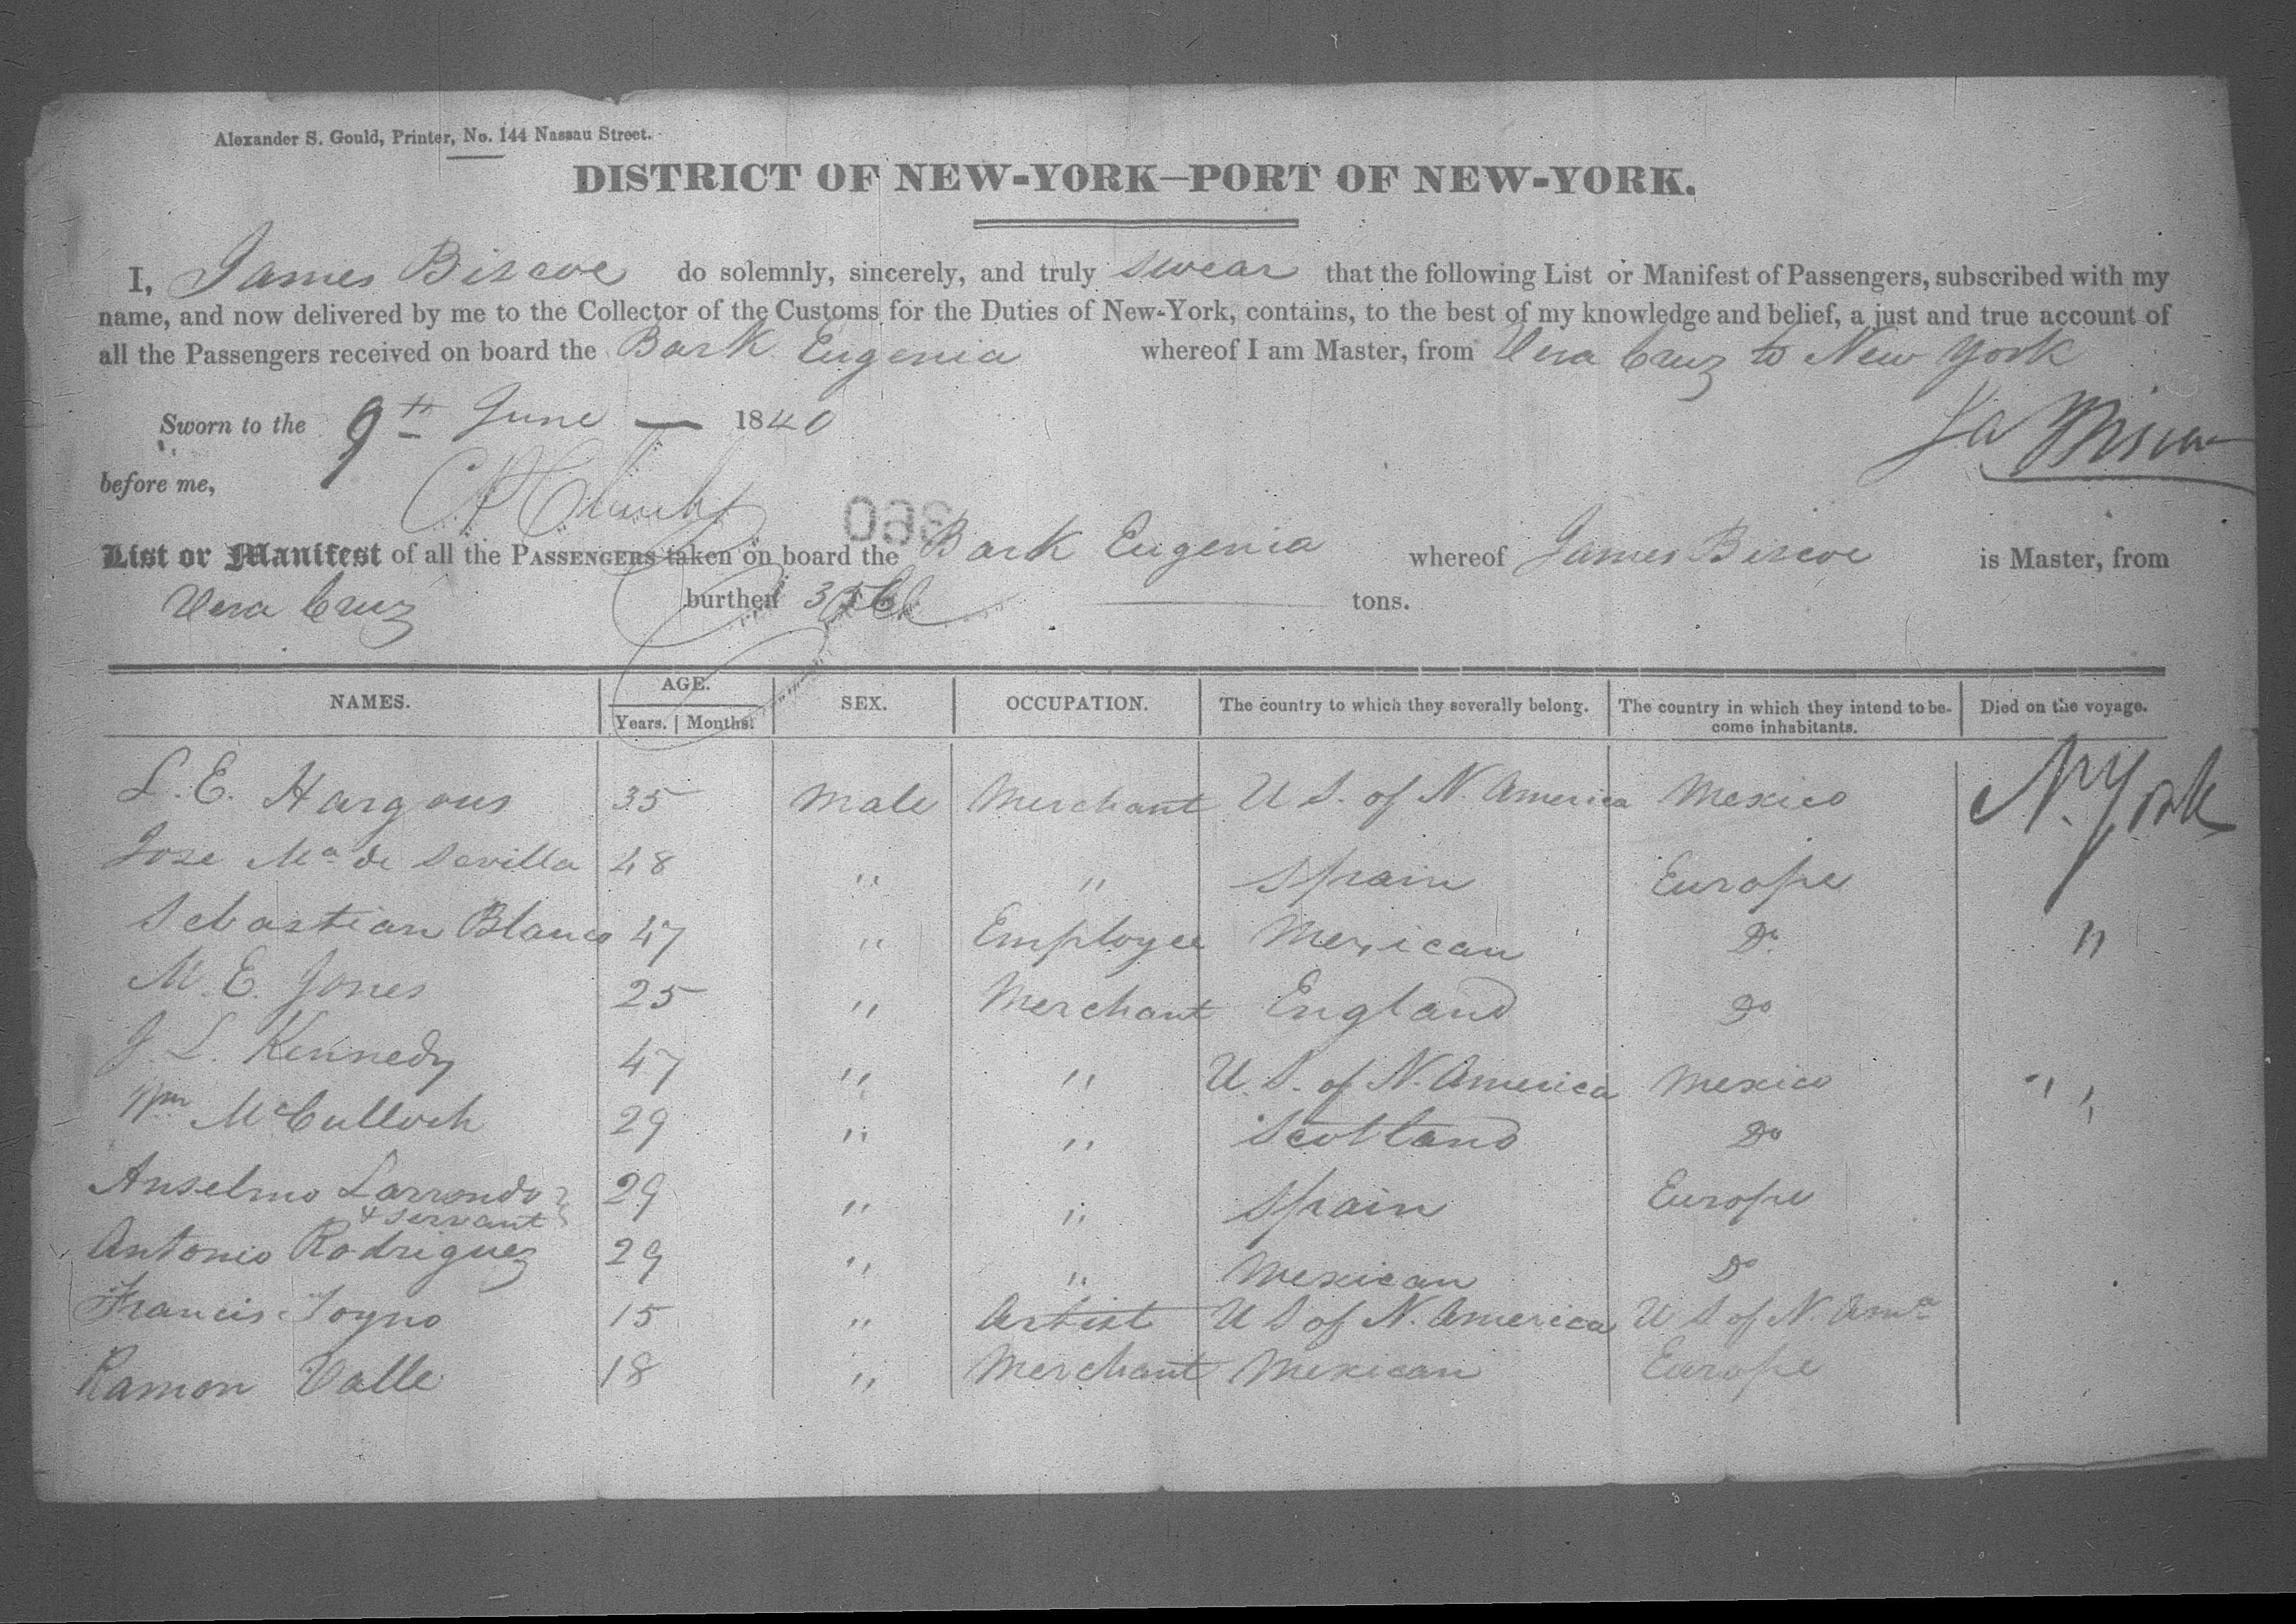 Alexander S. Gould, Printer, No. 144 Nassau Street.
DISTRICT OF NEW-YORK—PORT OF NEW-YORK.
I, James Biscoe do solemnly, sincerely, and truly swear that the following List or Manifest of Passengers, subscribed with my
name, and now delivered by me to the Collector of the Customs for the Duties of New-York, contains, to the best of my knowledge and belief, a just and true account of
all the Passengers received on board the Bark Eugenia whereof I am Master, from Vera Cruz to New York
Sworn to the 9th June — 1840
Ja Biscoe
before me,
List or Manifest of all the PASSENGERS taken on board the Bark Eugenia whereof James Biscoe is Master, from
Vera Cruz burthen tons.
NAMES. AGE. Years. Months. SEX. OCCUPATION. The country to which they severally belong. The country in which they intend to become inhabitants. Died on the voyage.
L. E. Hargous 35 Male Merchant U S. of N. America Mexico N. York
Jose Ma de Sevilla 48 " " Spain Europe
Sebastian Blanco 47 " Employee Mexican Do "
M. E. Jones 25 " Merchant England Do
J. L. Kennedy 47 " " U. S. of N. America Mexico "
Wm McCulloch 29 " " Scotland Do "
Anselmo Larrondo 29 " " Spain Europe
& servant
Antonio Rodriguez 29 " " Mexican Do
Francis 15 " Artist U S of N. America U S of N. Ama
Ramon Valle 18 " Merchant Mexican Europe